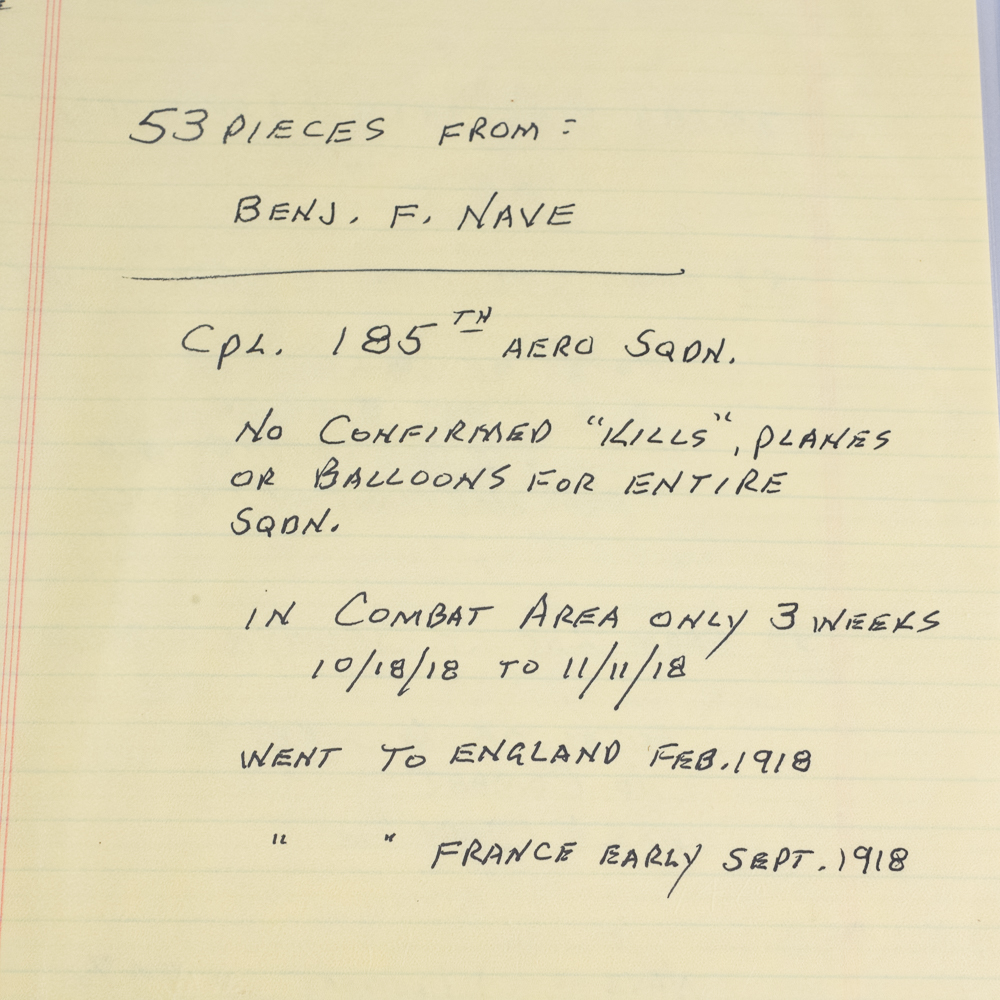 53 PIECES FROM:
BENJ. F. NAVE
CPL. 185TH AERO SQDN.
NO CONFIRMED "KILLS", PLANES
OR BALLOONS FOR ENTIRE
SQDN.
IN COMBAT AREA ONLY 3 WEEKS
10/18/18 TO 11/11/18
WENT TO ENGLAND FEB. 1918
" " FRANCE EARLY SEPT. 1918